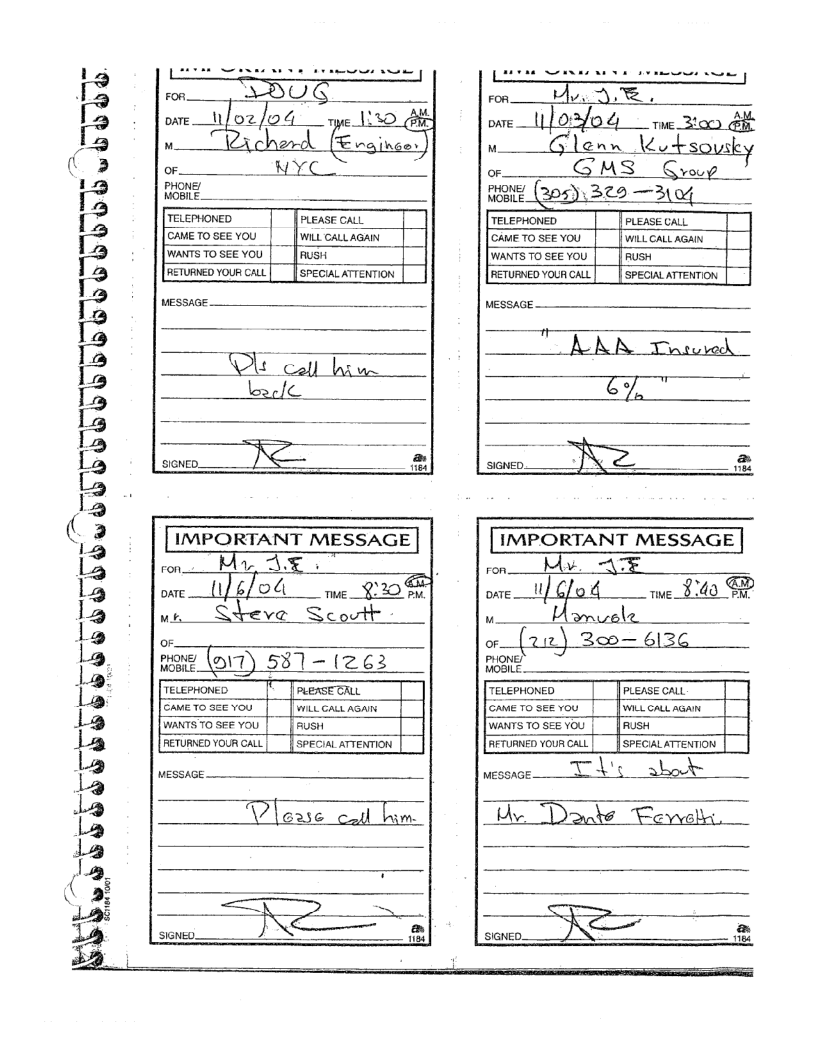 IMPORTANT MESSAGE
FOR DOUG
DATE 11/02/04 TIME 1:30 A.M. P.M.
M Richard (Engineer)
OF NYC
PHONE/ MOBILE
TELEPHONED PLEASE CALL
CAME TO SEE YOU WILL CALL AGAIN
WANTS TO SEE YOU RUSH
RETURNED YOUR CALL SPECIAL ATTENTION
MESSAGE
Pls call him
back
SIGNED
1184
IMPORTANT MESSAGE
FOR Mr. J.E.
DATE 11/03/04 TIME 3:00 A.M. P.M.
M Glenn Kutsovsky
OF GMS Group
PHONE/ MOBILE (305) 329-3104
TELEPHONED PLEASE CALL
CAME TO SEE YOU WILL CALL AGAIN
WANTS TO SEE YOU RUSH
RETURNED YOUR CALL SPECIAL ATTENTION
MESSAGE
" AAA Insured
6% "
SIGNED
1184
IMPORTANT MESSAGE
FOR Mr. J.E.
DATE 11/6/04 TIME 8:30 A.M. P.M.
M r. Steve Scoutt
OF
PHONE/ MOBILE (917) 587-1263
TELEPHONED PLEASE CALL
CAME TO SEE YOU WILL CALL AGAIN
WANTS TO SEE YOU RUSH
RETURNED YOUR CALL SPECIAL ATTENTION
MESSAGE
Please call him.
SIGNED
1184
IMPORTANT MESSAGE
FOR Mr. J.E
DATE 11/6/04 TIME 8:40 A.M. P.M.
M Manuela
OF (212) 300-6136
PHONE/ MOBILE
TELEPHONED PLEASE CALL
CAME TO SEE YOU WILL CALL AGAIN
WANTS TO SEE YOU RUSH
RETURNED YOUR CALL SPECIAL ATTENTION
MESSAGE It's about
Mr. Dante Ferretti.
SIGNED
1184
SC1184 10/01